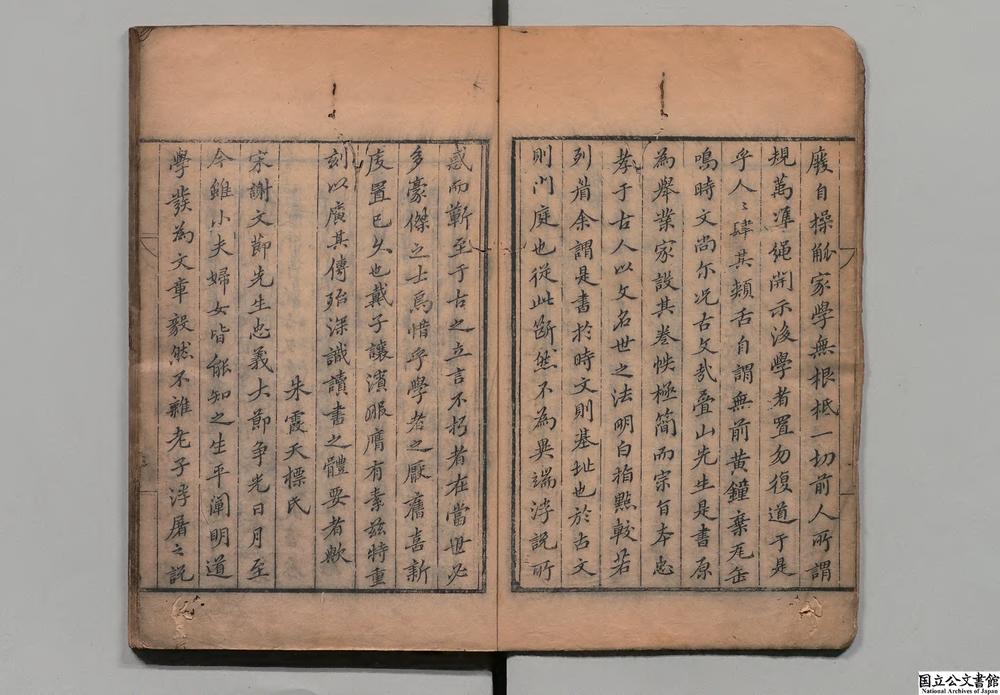 廢自操觚家學無根柢一切前人所謂
規萬準繩開示後學者置勿復道于是
乎人〻肆其頰舌自謂無前黃鐘棄瓦缶
鳴時文尚尓况古文㢤疊山先生是書原
為舉業家設其卷帙極簡而宗旨本忠
孝于古人以文名世之法明白指點較若
列眉余謂是書於時文則基址也於古文
則門庭也從此斷然不為異端浮説所
惑而蘄至于古之立言不朽者在當世必
多豪傑之士焉惜乎學者之厭舊喜新
庋置已久也戴子讓濱服膺有素兹特重
刻以廣其傳殆深識讀書之體要者歟
朱霞天標氏
宋謝文節先生忠義大節争光日月至
今雖小夫婦女皆能知之生平闡明道
學發為文章毅然不雜老子浮屠之説
国立公文書館
National Archives of Japan